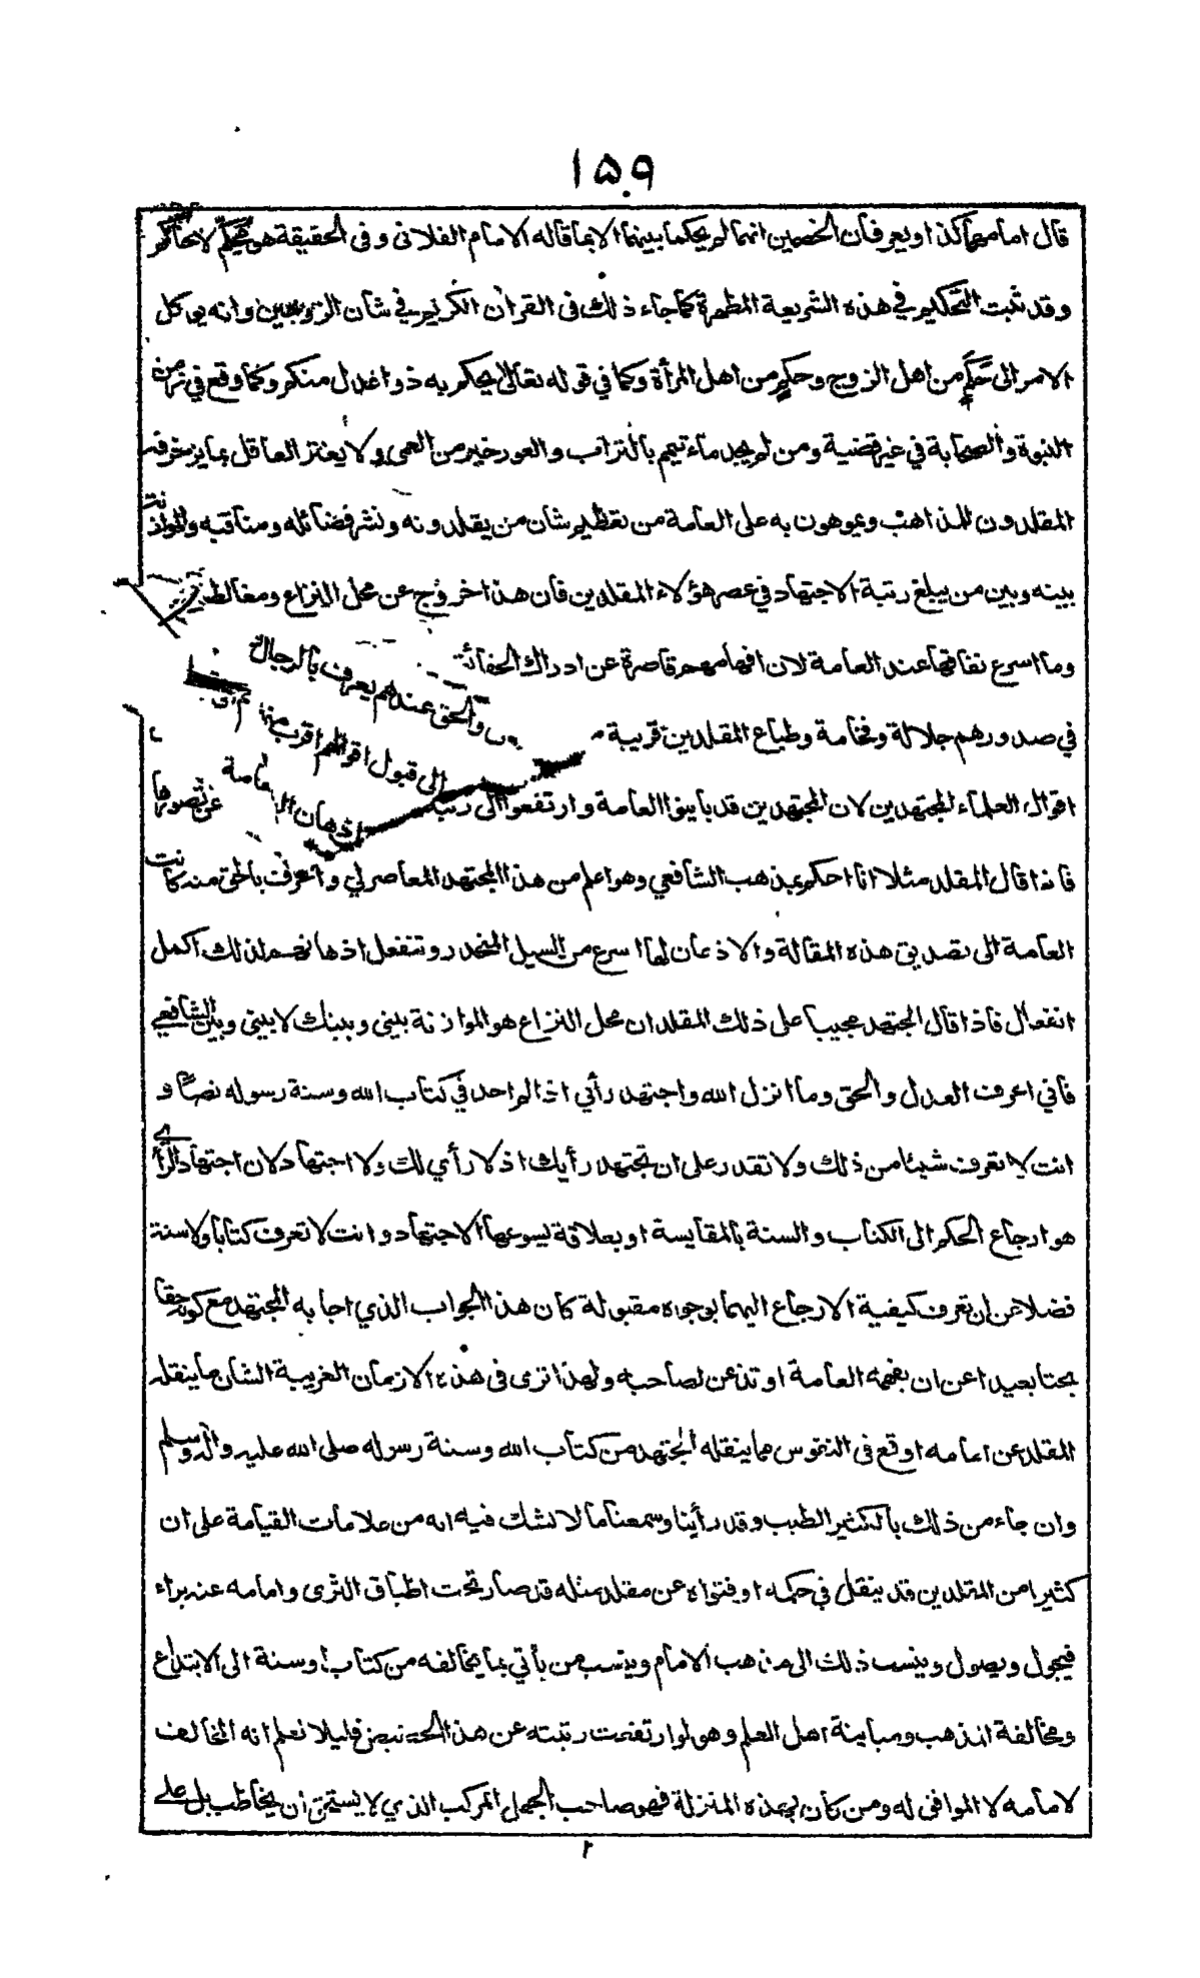 ١٥٩
قال امامهما كذا ويعرف ان الخصمين انهما لم يحكما بينهما الا بما قاله الامام الفلانى وفى الحقيقة هو محكم لا حاكم
وقد ثبت التحكيم في هذه الشريعة المطهرة كما جاء ذلك فى القران الكريم في شأن الزوجين وانه يوكل
الامر الى حكم من اهل الزوج وحكم من اهل المرأة وكما في قوله تعالى يحكم به ذوا عدل منكم وكما وقع في زمن
النبوة والصحابة في غير قضية ومن لم يجد ماء تيمم بالتراب والعور خير من العمى ولا يغتر العاقل بما يزخرفه
المقلدون للمذاهب ويموهون به على العامة من تعظيم شأن من يقلدونه ونشر فضائله ومناقبه والموازنة
بينه وبين من يبلغ رتبة الاجتهاد في عصر هؤلاء المقلدين فان هذا خروج عن محل النزاع ومغالطة
وما اسرع نفاقها عند العامة لان افهامهم قاصرة عن ادراك الحقائق والحق عندهم يعرف بالرجال
في صدورهم جلالة وفخامة وطباع المقلدين قريبة الى قبول اقوالهم اقرب منها
اقوال العلماء المجتهدين لان المجتهدين قد باينوا العامة وارتفعوا الى رتبة اذهان العامة عن تصورها
فاذا قال المقلد مثلا انا احكم بمذهب الشافعي وهو اعلم من هذا المجتهد المعاصر لي واعرف بالحق منه كانت
العامة الى تصديق هذه المقالة والاذعان لها اسرع من السيل المنحدر وتنفعل اذهانهم لذلك اكمل
انفعال فاذا قال المجتهد مجيبا على ذلك المقلد ان محل النزاع هو الموازنة بيني وبينك لا بيني وبين الشافعي
فاني اعرف العدل والحق وما انزل الله واجتهد رأيي اذا لم اجد في كتاب الله وسنة رسوله نصا و
انت لا تعرف شيئا من ذلك ولا تقدر على ان تجتهد رأيك اذ لا رأي لك ولا اجتهاد لان اجتهاد الرأي
هو ارجاع الحكم الى الكتاب والسنة بالمقايسة او بعلاقة يسوغها الاجتهاد وانت لا تعرف كتابا ولا سنة
فضلا عن ان تعرف كيفية الارجاع اليهما بوجوه مقبولة كان هذا الجواب الذي اجابه المجتهد مع كونه حقا
بحتا بعيدا عن ان يفهمه العامة او تذعن لصاحبه ولهذا ترى فى هذه الازمان الغريبة الشان ما ينقله
المقلد عن امامه اوقع فى النفوس مما ينقله المجتهد من كتاب الله وسنة رسوله صلى الله عليه وآله وسلم
وان جاء من ذلك بالكثير الطيب وقد رأينا وسمعنا ما لا نشك فيه انه من علامات القيامة على ان
كثيرا من المقلدين قد ينقل في حكمه او فتواه عن مقلد مثله قد صار تحت اطباق الثرى وامامه عنه براء
فيجول ويصول وينسب ذلك الى مذهب الامام وينسب من يأتي بما يخالفه من كتاب او سنة الى الابتداع
ومخالفة المذهب ومباينة اهل العلم وهو لو ارتفعت رتبته عن هذا الحضيض قليلا لعلم انه المخالف
لامامه لا الموافق له ومن كان بهذه المنزلة فهو صاحب الجهل المركب الذي لا يستحق ان يخاطب بل على
٢